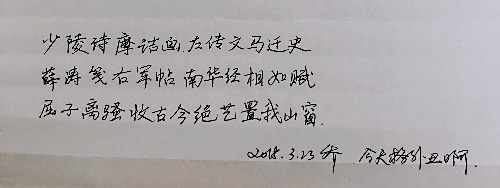 少陵诗摩诘画左传文马迁史
薛涛笺右军帖南华经相如赋
屈子离骚收古今绝艺置我山窗.
2018.3.23 今天格外丑啊.